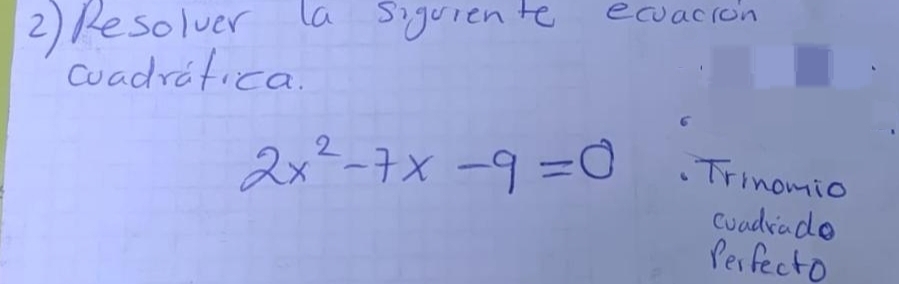 2) Resolver la siguiente ecuación
cuadrática.
2x² - 7x - 9 = 0
. Trinomio
cuadrado
Perfecto